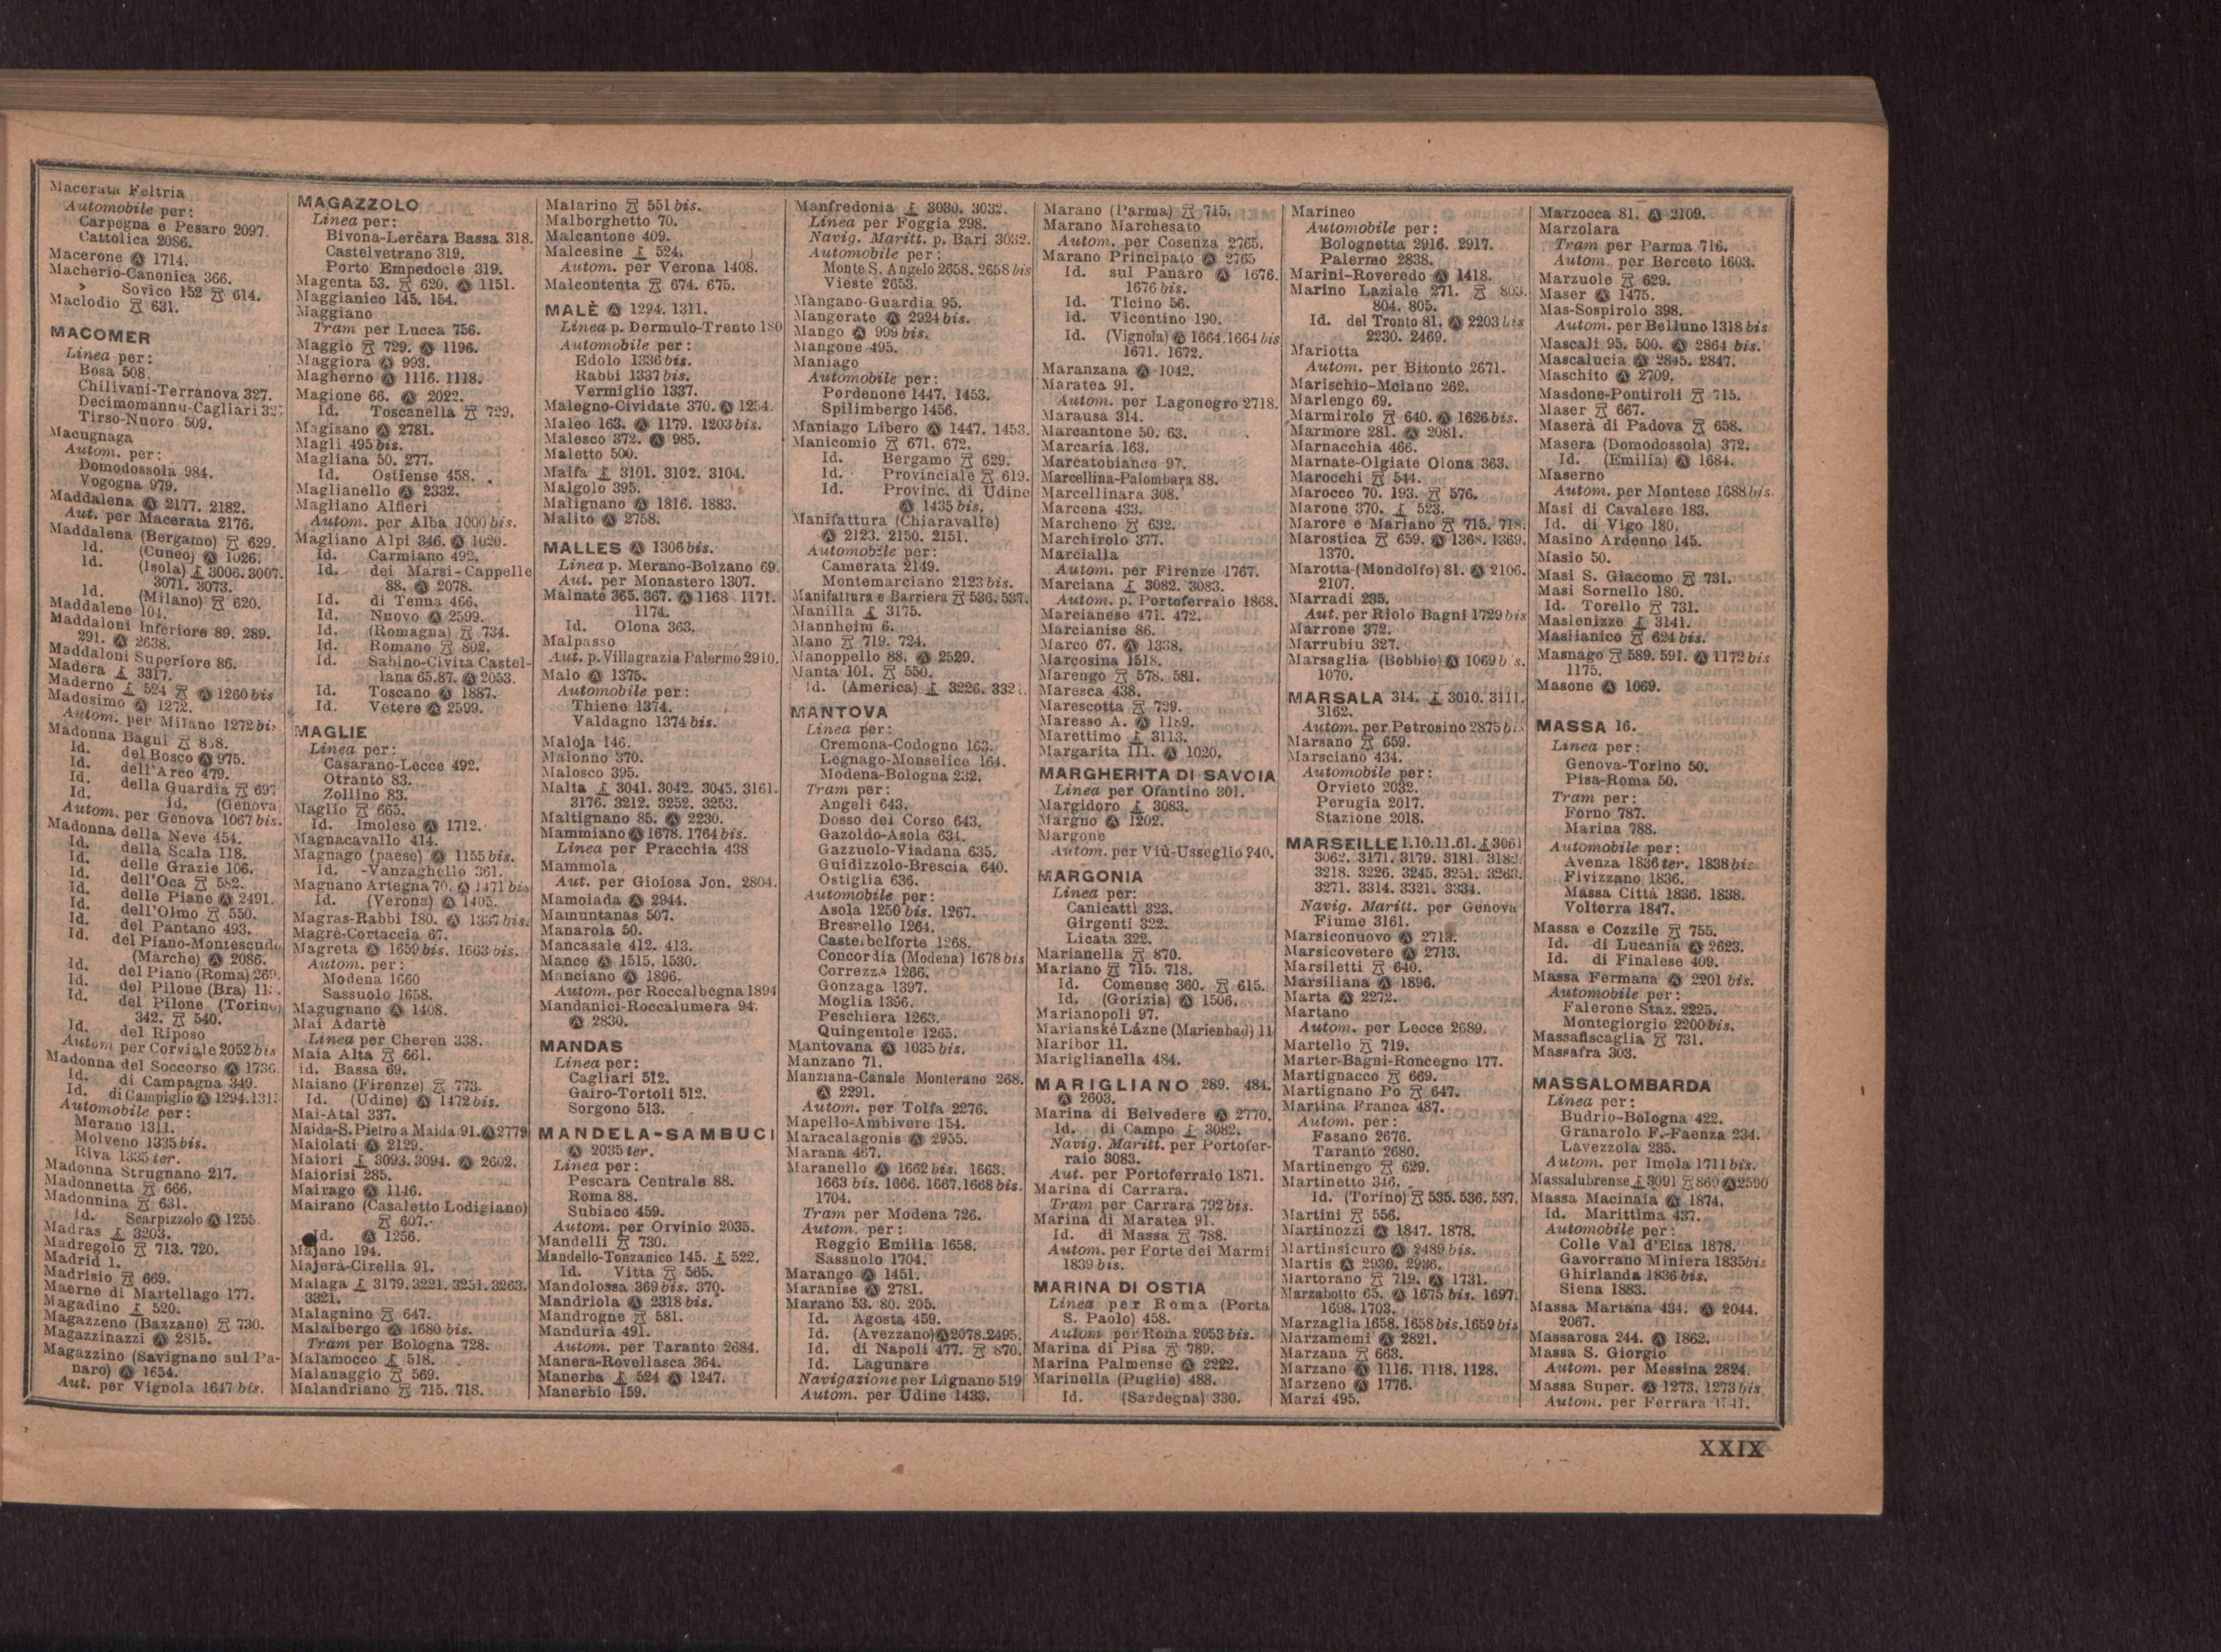 Macerata Feltria
Automobile per:
Carpegna e Pesaro 2097.
Cattolica 2086.
Macerone Ⓐ 1714.
Macherio-Canonica 366.
› Sovico 152 614.
Maclodio 631.
MACOMER
Linea per:
Bosa 508.
Chilivani-Terranova 327.
Decimomannu-Cagliari
Tirso-Nuoro 509.
Macugnaga
Autom. per:
Domodossola 984.
Vogogna 979.
Maddalena Ⓐ 2177. 2182.
Aut. per Macerata 2176.
Maddalena (Bergamo) 629.
Id. (Cuneo) Ⓐ 1026.
Id. (Isola) 3006. 3007.
3071. 3073.
Id. (Milano) 620.
Maddalene 104.
Maddaloni Inferiore 89. 289.
291. Ⓐ 2638.
Maddaloni Superiore 86.
Madera 3317.
Maderno 524 Ⓐ 1260 bis
Madesimo Ⓐ 1272.
Autom. per Milano 1272 bis
Madonna Bagni
Id. del Bosco Ⓐ 975.
Id. dell'Arco 479.
Id. della Guardia 697
Id. id. (Genova
Autom. per Genova 1067 bis.
Madonna della Neve 454.
Id. della Scala 118.
Id. delle Grazie 106.
Id. dell'Oca 582.
Id. delle Piane Ⓐ 2491.
Id. dell'Olmo 550.
Id. del Pantano 493.
Id. del Piano-Montescudo
(Marche) Ⓐ 2086.
Id. del Piano (Roma) 269.
Id. del Pilone (Bra)
Id. del Pilone (Torino)
342. 540.
Id. del Riposo
Autom per Corviale 2052 bis
Madonna del Soccorso Ⓐ 1736.
Id. di Campagna 349.
Id. di Campiglio Ⓐ 1294.
Automobile per:
Merano 1311.
Molveno 1335 bis.
Riva 1335 ter.
Madonna Strugnano 217.
Madonnetta 666.
Madonnina 631.
Id. Scarpizzolo Ⓐ 1255.
Madras 3203.
Madregolo 713. 720.
Madrid 1.
Madrisio 669.
Maerne di Martellago 177.
Magadino 520.
Magazzeno (Bazzano) 730.
Magazzinazzi Ⓐ 2815.
Magazzino (Savignano sul Pa-
naro) Ⓐ 1654.
Aut. per Vignola 1647 bis.
MAGAZZOLO
Linea per:
Bivona-Lercara Bassa 318.
Castelvetrano 319.
Porto Empedocle 319.
Magenta 53. 620. Ⓐ 1151.
Maggianico 145. 154.
Maggiano
Tram per Lucca 756.
Maggio 729. Ⓐ 1196.
Maggiora Ⓐ 993.
Magherno Ⓐ 1116. 1118.
Magione 66. Ⓐ 2022.
Id. Toscanella 729.
Magisano Ⓐ 2781.
Magli 495 bis.
Magliana 50. 277.
Id. Ostiense 458.
Maglianello Ⓐ 2332.
Magliano Alfieri
Autom. per Alba 1000 bis.
Magliano Alpi 346. Ⓐ 1020.
Id. Carmiano 492.
Id. dei Marsi-Cappelle
88. Ⓐ 2078.
Id. di Tenna 466.
Id. Nuovo Ⓐ 2599.
Id. (Romagna) 734.
Id. Romano 802.
Id. Sabino-Civita Castel-
lana 65.87. Ⓐ 2053.
Id. Toscano Ⓐ 1887.
Id. Vetere Ⓐ 2599.
MAGLIE
Linea per:
Casarano-Lecce 492.
Otranto 83.
Zollino 83.
Maglio 665.
Id. Imolese Ⓐ 1712.
Magnacavallo 414.
Magnago (paese) Ⓐ 1155 bis.
Id. -Vanzaghello 361.
Magnano Artegna 70. Ⓐ 1471 bis
Id. (Verona) Ⓐ 1405.
Magras-Rabbi 180. Ⓐ 1337 bis.
Magrè-Cortaccia 67.
Magreta Ⓐ 1659 bis. 1663 bis.
Autom. per:
Modena 1660
Sassuolo 1658.
Magugnano Ⓐ 1408.
Mai Adartè
Linea per Cheren 338.
Maia Alta 661.
id. Bassa 69.
Maiano (Firenze) 773.
Id. (Udine) Ⓐ 1472 bis.
Mai-Atal 337.
Maida-S. Pietro a Maida 91. Ⓐ 2779
Maiolati Ⓐ 2129.
Maiori 3093. 3094. Ⓐ 2602.
Maiorisi 285.
Mairago Ⓐ 1146.
Mairano (Casaletto Lodigiano)
607.
Id. Ⓐ 1256.
Majano 194.
Majerà-Cirella 91.
Malaga 3179. 3221. 3251. 3263.
3321.
Malagnino 647.
Malalbergo Ⓐ 1680 bis.
Tram per Bologna 728.
Malamocco 518.
Malanaggio 569.
Malandriano 715. 718.
Malarino 551 bis.
Malborghetto 70.
Malcantone 409.
Malcesine 524.
Autom. per Verona 1408.
Malcontenta 674. 675.
MALÈ Ⓐ 1294. 1311.
Linea p. Dermulo-Trento 180
Automobile per:
Edolo 1336 bis.
Rabbi 1337 bis.
Vermiglio 1337.
Malegno-Cividate 370. Ⓐ 1254.
Maleo 163. Ⓐ 1179. 1203 bis.
Malesco 372. Ⓐ 985.
Maletto 500.
Malfa 3101. 3102. 3104.
Malgolo 395.
Malignano Ⓐ 1816. 1883.
Malito Ⓐ 2758.
MALLES Ⓐ 1306 bis.
Linea p. Merano-Bolzano 69.
Aut. per Monastero 1307.
Malnate 365. 367. Ⓐ 1168 1171.
1174.
Id. Olona 363.
Malpasso
Aut. p. Villagrazia Palermo 2910.
Malo Ⓐ 1375.
Automobile per:
Thiene 1374.
Valdagno 1374 bis.
Maloja 146.
Malonno 370.
Malosco 395.
Malta 3041. 3042. 3045. 3161.
3176. 3212. 3252. 3253.
Maltignano 85. Ⓐ 2230.
Mammiano Ⓐ 1678. 1764 bis.
Linea per Pracchia 438
Mammola
Aut. per Gioiosa Jon. 2804.
Mamoiada Ⓐ 2944.
Mamuntanas 507.
Manarola 50.
Mancasale 412. 413.
Mance Ⓐ 1515. 1530.
Manciano Ⓐ 1896.
Autom. per Roccalbegna 1894
Mandanici-Roccalumera 94.
Ⓐ 2830.
MANDAS
Linea per:
Cagliari 512.
Gairo-Tortoli 512.
Sorgono 513.
MANDELA-SAMBUCI
Ⓐ 2035 ter.
Linea per:
Pescara Centrale 88.
Roma 88.
Subiaco 459.
Autom. per Orvinio 2035.
Mandelli 730.
Mandello-Tonzanico 145. 522.
Id. Vitta 565.
Mandolossa 369 bis. 370.
Mandriola Ⓐ 2318 bis.
Mandrogne 581.
Manduria 491.
Autom. per Taranto 2684.
Manera-Rovellasca 364.
Manerba 524 Ⓐ 1247.
Manerbio 159.
Manfredonia 3030. 3032.
Linea per Foggia 298.
Navig. Maritt. p. Bari 3032.
Automobile per:
Monte S. Angelo 2658. 2658 bis
Vieste 2653.
Mangano-Guardia 95.
Mangerate Ⓐ 2924 bis.
Mango Ⓐ 999 bis.
Mangone 495.
Maniago
Automobile per:
Pordenone 1447. 1453.
Spilimbergo 1456.
Maniago Libero Ⓐ 1447. 1453.
Manicomio 671. 672.
Id. Bergamo 629.
Id. Provinciale 619.
Id. Provinc. di Udine
Ⓐ 1435 bis.
Manifattura (Chiaravalle)
Ⓐ 2123. 2150. 2151.
Automobile per:
Camerata 2149.
Montemarciano 2123 bis.
Manifattura e Barriera 536. 537.
Manilla 3175.
Mannheim 6.
Mano 719. 724.
Manoppello 88. Ⓐ 2529.
Manta 101. 550.
Id. (America) 3226.
MANTOVA
Linea per:
Cremona-Codogno 163.
Legnago-Monselice 164.
Modena-Bologna 232.
Tram per:
Angeli 643.
Dosso del Corso 643.
Gazoldo-Asola 634.
Gazzuolo-Viadana 635.
Guidizzolo-Brescia 640.
Ostiglia 636.
Automobile per:
Asola 1250 bis. 1267.
Bresrello 1264.
Castelbelforte 1268.
Concordia (Modena) 1678 bis
Correzza 1266.
Gonzaga 1397.
Moglia 1356.
Peschiera 1263.
Quingentole 1265.
Mantovana Ⓐ 1035 bis.
Manzano 71.
Manziana-Canale Monterano 268.
Ⓐ 2291.
Autom. per Tolfa 2276.
Mapello-Ambivere 154.
Maracalagonis Ⓐ 2955.
Marana 467.
Maranello Ⓐ 1662 bis. 1663.
1663 bis. 1666. 1667. 1668 bis.
1704.
Tram per Modena 726.
Autom. per:
Reggio Emilia 1658.
Sassuolo 1704.
Marango Ⓐ 1451.
Maranise Ⓐ 2781.
Marano 53. 80. 205.
Id. Agosta 459.
Id. (Avezzano) Ⓐ 2078. 2495.
Id. di Napoli 477. 870.
Id. Lagunare
Navigazione per Lignano 519
Autom. per Udine 1433.
Marano (Parma) 715.
Marano Marchesato
Autom. per Cosenza 2765.
Marano Principato Ⓐ 2765
Id. sul Panaro Ⓐ 1676.
1676 bis.
Id. Ticino 56.
Id. Vicentino 190.
Id. (Vignola) Ⓐ 1664. 1664 bis
1671. 1672.
Maranzana Ⓐ 1042.
Maratea 91.
Autom. per Lagonegro 2718.
Marausa 314.
Marcantone 50. 63.
Marcaria 163.
Marcatobianco 97.
Marcellina-Palombara 88.
Marcellinara 308.
Marcena 433.
Marcheno 632.
Marchirolo 377.
Marcialla
Autom. per Firenze 1767.
Marciana 3082. 3083.
Autom. p. Portoferraio 1868.
Marcianese 471. 472.
Marcianise 86.
Marco 67. Ⓐ 1338.
Marcosina 1518.
Marengo 578. 581.
Maresca 438.
Marescotta 729.
Maresso A. Ⓐ 1189.
Marettimo 3113.
Margarita 111. Ⓐ 1020.
MARGHERITA DI SAVOIA
Linea per Ofantino 301.
Margidoro 3083.
Margno Ⓐ 1202.
Margone
Autom. per Viù-Usseglio 240.
MARGONIA
Linea per:
Canicatti 323.
Girgenti 322.
Licata 322.
Marianella 870.
Mariano 715. 718.
Id. Comense 360. 615.
Id. (Gorizia) Ⓐ 1506.
Marianopoli 97.
Marianské Lázne (Marienbad) 11
Maribor 11.
Mariglianella 484.
MARIGLIANO 289. 484.
Ⓐ 2603.
Marina di Belvedere Ⓐ 2770.
Id. di Campo 3082.
Navig. Maritt. per Portofer-
raio 3083.
Aut. per Portoferraio 1871.
Marina di Carrara.
Tram per Carrara 792 bis.
Marina di Maratea 91.
Id. di Massa 788.
Autom. per Forte dei Marmi
1839 bis.
MARINA DI OSTIA
Linea per Roma (Porta
S. Paolo) 458.
Autom per Roma 2053 bis.
Marina di Pisa 789.
Marina Palmense Ⓐ 2222.
Marinella (Puglie) 488.
Id. (Sardegna) 330.
Marineo
Automobile per:
Bolognetta 2916. 2917.
Palermo 2838.
Marini-Roveredo Ⓐ 1418.
Marino Laziale 271. 803.
804. 805.
Id. del Tronto 81. Ⓐ 2203 bis
2230. 2469.
Mariotta
Autom. per Bitonto 2671.
Marischio-Melano 262.
Marlengo 69.
Marmirolo 640. Ⓐ 1626 bis.
Marmore 281. Ⓐ 2081.
Marnacchia 466.
Marnate-Olgiate Olona 363.
Marocchi 544.
Marocco 70. 193. 576.
Marone 370. 523.
Marore e Mariano 715. 718.
Marostica 659. Ⓐ 1368. 1369.
1370.
Marotta-(Mondolfo) 81. Ⓐ 2106.
2107.
Marradi 235.
Aut. per Riolo Bagni 1729 bis
Marrone 372.
Marrubiu 327.
Marsaglia (Bobbio) Ⓐ 1069 bis.
1070.
MARSALA 314. 3010. 3111.
3162.
Autom. per Petrosino 2875 bis
Marsano 659.
Marsciano 434.
Automobile per:
Orvieto 2032.
Perugia 2017.
Stazione 2018.
MARSEILLE 1.10.11.61. 3061
3062. 3171. 3179. 3181. 3182.
3218. 3226. 3245. 3251. 3263.
3271. 3314. 3321. 3334.
Navig. Maritt. per Genova
Fiume 3161.
Marsiconuovo Ⓐ 2713.
Marsicovetere Ⓐ 2713.
Marsiletti 640.
Marsiliana Ⓐ 1896.
Marta Ⓐ 2272.
Martano
Autom. per Lecce 2689.
Martello 719.
Marter-Bagni-Roncegno 177.
Martignacco 669.
Martignano Po 647.
Martina Franca 487.
Autom. per:
Fasano 2676.
Taranto 2680.
Martinengo 629.
Martinetto 346.
Id. (Torino) 535. 536. 537.
Martini 556.
Martinozzi Ⓐ 1847. 1878.
Martinsicuro Ⓐ 2489 bis.
Martis Ⓐ 2930. 2936.
Martorano 719. Ⓐ 1731.
Marzabotto 65. Ⓐ 1675 bis. 1697.
1698. 1703.
Marzaglia 1658. 1658 bis. 1659 bis
Marzamemi Ⓐ 2821.
Marzana 663.
Marzano Ⓐ 1116. 1118. 1128.
Marzeno Ⓐ 1776.
Marzi 495.
Marzocca 81. Ⓐ 2109.
Marzolara
Tram per Parma 716.
Autom. per Berceto 1603.
Marzuole 629.
Maser Ⓐ 1475.
Mas-Sospirolo 398.
Autom. per Belluno 1318 bis
Mascali 95. 500. Ⓐ 2864 bis.
Mascalucia Ⓐ 2845. 2847.
Maschito Ⓐ 2709.
Masdone-Pontiroli 715.
Maser 667.
Maserà di Padova 658.
Masera (Domodossola) 372.
Id. (Emilia) Ⓐ 1684.
Maserno
Autom. per Montese 1688 bis.
Masi di Cavalese 183.
Id. di Vigo 180.
Masino Ardenno 145.
Masio 50.
Masi S. Giacomo 731.
Masi Sornello 180.
Id. Torello 731.
Maslenizze 3141.
Maslianico 624 bis.
Masnago 589. 591. Ⓐ 1172 bis
1175.
Masone Ⓐ 1069.
MASSA 16.
Linea per:
Genova-Torino 50.
Pisa-Roma 50.
Tram per:
Forno 787.
Marina 788.
Automobile per:
Avenza 1836 ter. 1838 bis
Fivizzano 1836.
Massa Città 1836. 1838.
Volterra 1847.
Massa e Cozzile 755.
Id. di Lucania Ⓐ 2623.
Id. di Finalese 409.
Massa Fermana Ⓐ 2201 bis.
Automobile per:
Falerone Staz. 2225.
Montegiorgio 2200 bis.
Massafiscaglia 731.
Massafra 303.
MASSALOMBARDA
Linea per:
Budrio-Bologna 422.
Granarolo F.-Faenza 234.
Lavezzola 235.
Autom. per Imola 1711 bis.
Massalubrense 3091 869 Ⓐ 2590
Massa Macinaia Ⓐ 1874.
Id. Marittima 437.
Automobile per:
Colle Val d'Elsa 1878.
Gavorrano Miniera 1835 bis
Ghirlanda 1836 bis.
Siena 1883.
Massa Martana 434. Ⓐ 2044.
2067.
Massarosa 244. Ⓐ 1862.
Massa S. Giorgio
Autom. per Messina 2824.
Massa Super. Ⓐ 1273. 1273 bis
Autom. per Ferrara
XXIX